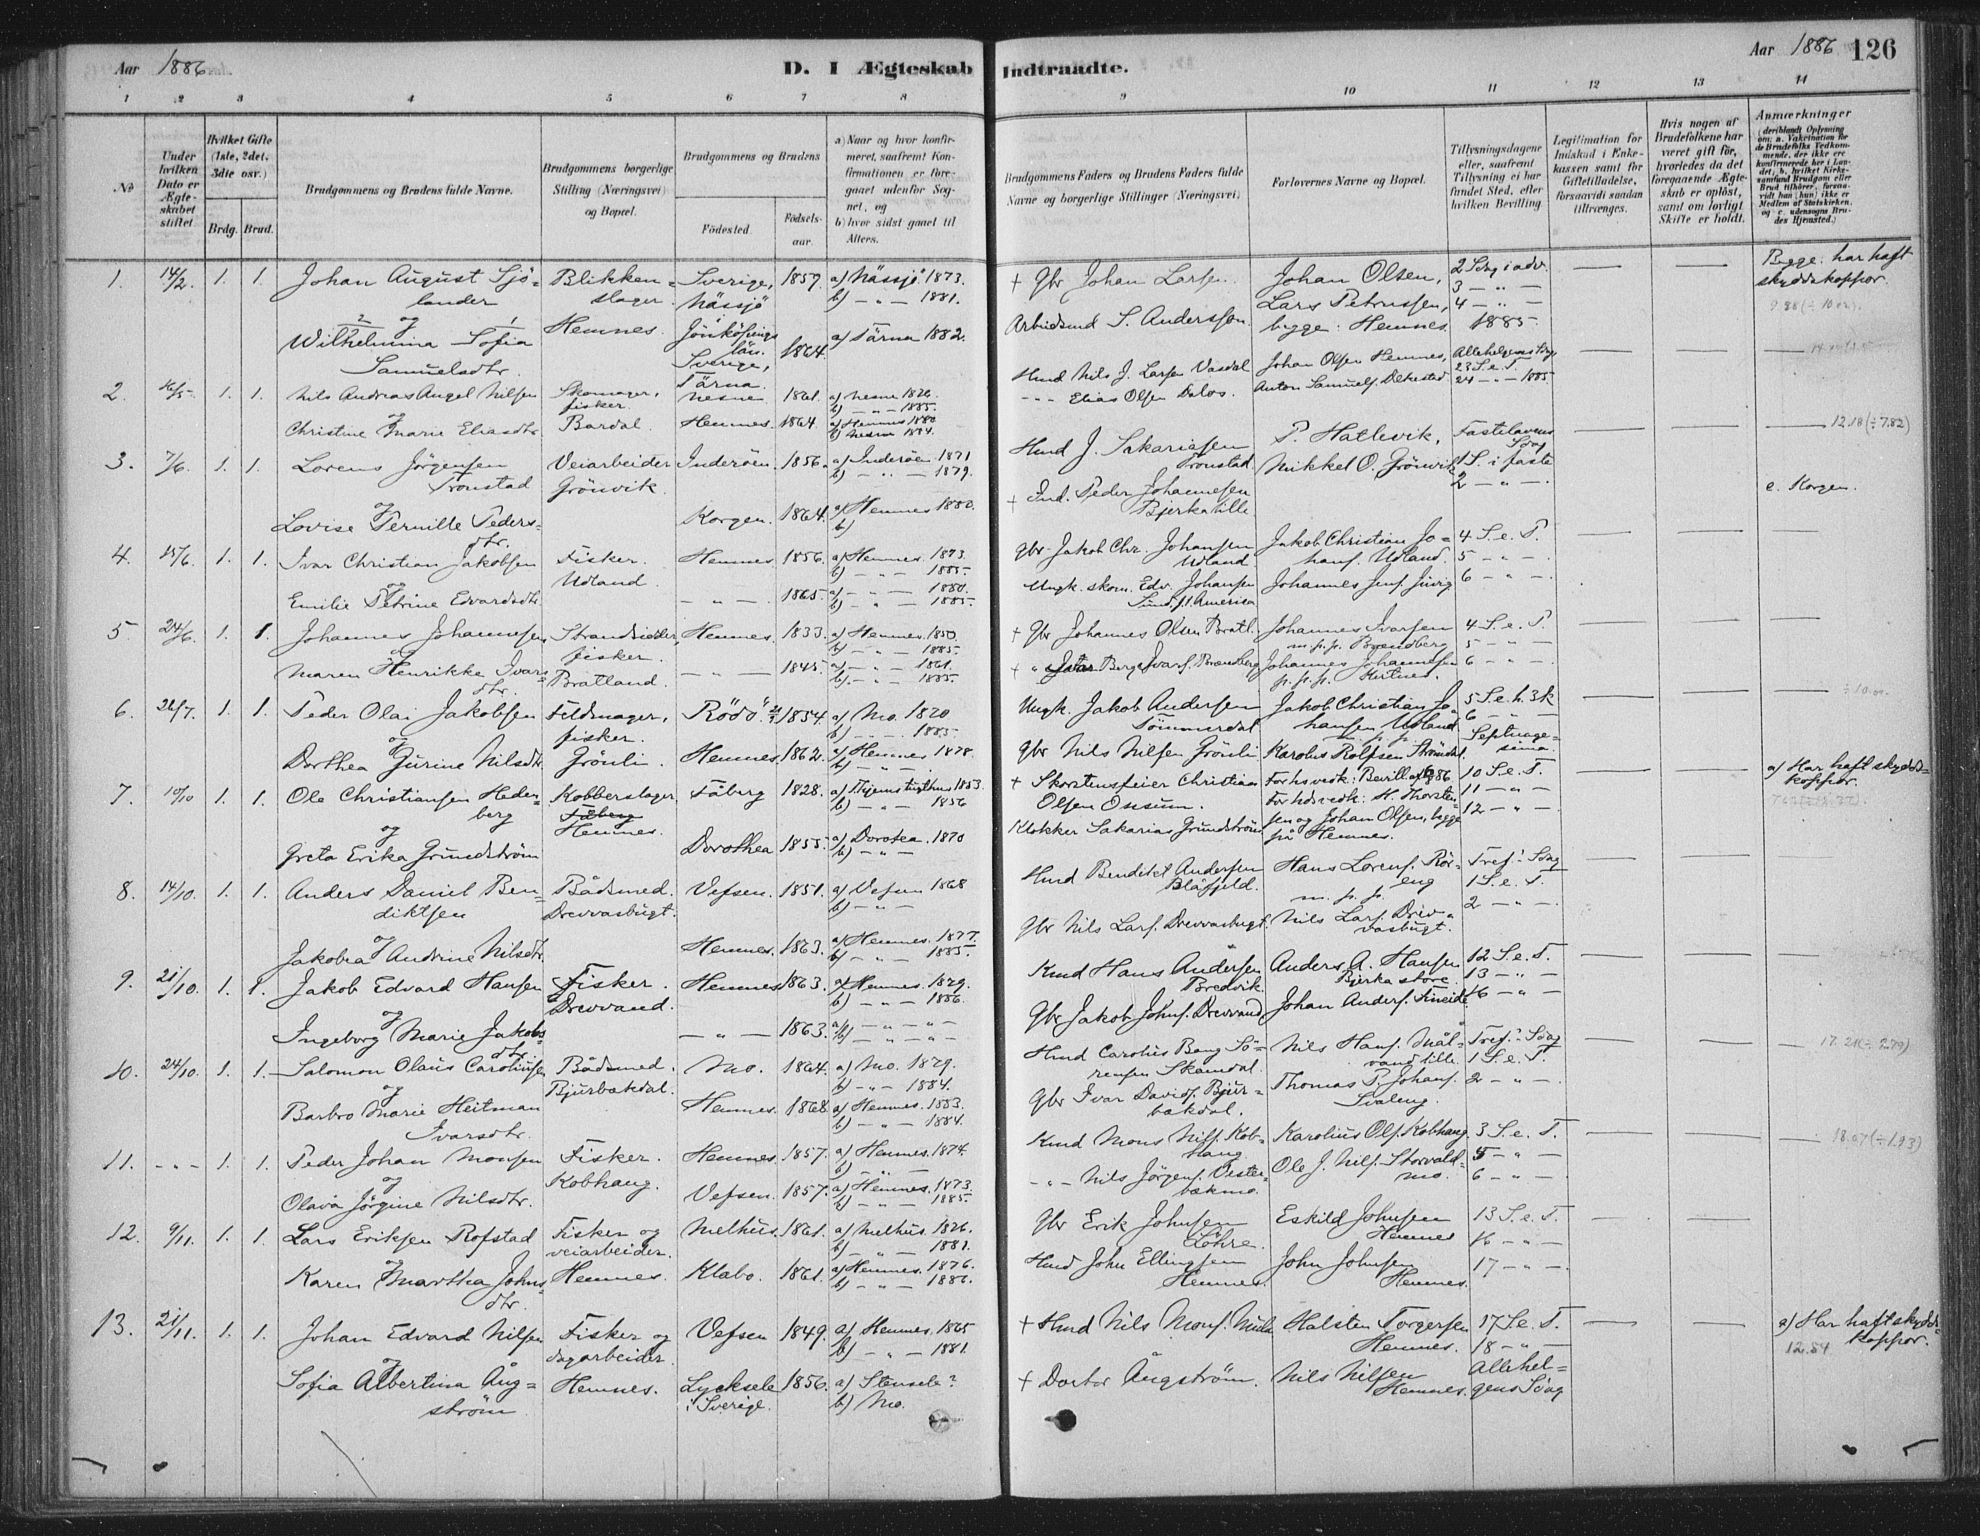 Aar 1886
D. I Ægteskab Indtraadte.
Aar 1886 126
1 2 3 4 5 6 7 8 9 10 11 12 13 14
№
Under hvilken Dato er Ægteskabet stiftet.
Hvilket Gifte (1ste, 2det, 3die osv.)
Brdg. Brud.
Brudgommens og Brudens fulde Navne.
Brudgommens borgerlige Stilling (Næringsvei) og Bopæl.
Brudgommens og Brudens
Fødested.
Fødselsaar.
a) Naar og hvor konfirmeret, saafremt Konfirmationen er foregaaet udenfor Sognet, og
b) hvor sidst gaaet til Alters.
Brudgommens Faders og Brudens Faders fulde Navne og borgerlige Stillinger (Næringsvei)
Forlovernes Navne og Bopæl.
Tillysningsdagene eller, saafremt Tillysning ei har fundet Sted, efter hvilken Bevilling
Legitimation for Indskud i Enkekassen samt for Giftetilladelse, forsaavidt saadan tiltrænges.
Hvis nogen af Brudefolkene har været gift før, hvorledes da det foregaaende Ægteskab er opløst, samt om lovligt Skifte er holdt.
Anmærkninger
1. 14/2. 1. 1. Johan August Sjölander Blikkenslager Hemnes. Sverige, Nässjö i Jönköpings län. 1859. a) Nässjö 1873. b) - " - 1881.
+ Gbr Johan Larsen. Johan Olsen, Lars Petrussen, begge: Hemnes. 2 Sdag i adv. 3 - " - 4 - " - 1885.
Begge har haft skyddskoppor.
og
Wilhelmina Sofia Samuelsdtr. Sverige, Tärna. 1864. a) Tärna 1882.
Arbeidsmd S. Anderssen.
2. 16/5 1. 1. Nils Andreas Angel Nilsen Skomager, fisker. Bardal. Nesne 1861. a) Nesne 1876. b) - " - 1885.
Hmd Nils J. Larsen Vasdal Johan Olsen Hemnes, Allehelgens Sdag, 23 S. e. T. 24 - " - 1885
og
Christine Marie Eliasdtr. Hemnes. 1864. a) Hemnes 1880 b) Nesne 1884.
- " - Elias Olsen Dalos. Anton Samuels.
12.18 (÷ 7.82)
3. 7/6. 1. 1. Lorens Jörgensen Tronstad Veiarbeider Grönvik. Inderöen. 1856. a) Inderöen 1871 b) - " - 1879.
Hmd J. Sakariassen Tronstad. P. Hatlevik, Mikkel O. Grönvik Fastelavens Sdag 1 S. i faste 2 - " -
og
Lovise Pernille Pedersdtr. Korgen. 1864. a) Hemnes 1880. b)
+ Ind. Peder Johannesen Bjerkalille
c. Korgen.
4. 15/6. 1. 1. Ivar Christian Jakobsen Fisker. Utland. Hemnes. 1856. a) Hemnes 1873 b) - " - 1885.
Gbr Jakob Chr. Johansen Utland. Jakob Christian Johans. Utland. 4 S. e. P. 5 - " - 6 - " -
og
Emilie Petrine Edvardsdtr - " - 1865. a) - " - 1880. b) - " - 1885.
Ungk. skom. Edv. Johansen Johannes Jens.
5. 24/6. 1. 1. Johannes Johannesen Strandsidder, fisker. Bratland. Hemnes. 1833. a) Hemnes. 1850. b) - " - 1885.
+ Gbr Johannes Olsen Bratl. Johannes Ivarsen m.p.p. Brændberg 4 S. e. P. 5 - " - 6 - " -
og
Maren Henrikke Ivarsdtr. - " - 1845. a) - " - 1861. b) - " - 1885.
Johannes Johannesen p.p.p.
6. 26/7. 1. 1. Peder Olai Jakobsen Feldmager, fisker. Grönli. Rödö 1854. a) Mo. 1870 b) - " - 1885.
Ungk. Jakob Andersen Tömmerdal Jakob Christian Johansen Utland m.p.p. 5 S. e. h. 3 k 6 - " - Septuagesima.
og
Dorthea Gurine Nilsdtr. Hemnes. 1862. a) Hemnes. 1878. b) - " -
Gbr Nils Nilsen Grönli Karolus Rolfsen
7. 10/10 1. 1. Ole Christiansen Hederberg Kobberslager Faaberg Hemnes. Fåberg 1828. 1853. b) - " - 1856
+ Skorstensfeier Christian Olsen Onsum. 10 S. e. T. 11 - " - 12 - " -
a) Har haft skyddskoppor.
og
Greta Erika Grundström Dorothea 1855. a) Dorotea. 1870 b) - " -
Klokker Sakarias Grundström H. Thorstensen og Johan Olsen, begge på Hemnes.
8. 14/10. 1. 1. Anders Daniel Bendiktsen Bådsmed. Drevvasbugt. Vefsen. 1851. a) Vefsen 1868 b) - " -
Hmd Benditel Andersen Blåfjeld. Hans Lorens. Röreng m.p.p. Tref: Sdag 1 S. e. T. 2 - " -
og
Jakobea Andrine Nilsdtr. Hemnes. 1863. a) Hemnes. 1877. b) - " - 1885.
Gbr Nils Lars. Drevvasbugt. Nils Lars. Drevvasbugt.
9. 21/10. 1. 1. Jakob Edvard Hansen Fisker. Drevvand. Hemnes 1863. a) Hemnes. 1879. b) - " - 1886.
Kmd Hans Andersen Bredvik. Anders A. Hansen Bjerka store 12 S. e. T. 13 - " - 16 - " -
og
Ingeborg Marie Jakobsdtr. - " - 1863. a/b) - " - " -
Gbr Jakob Johns. Drevvand. Johan Anders. Fineide
10. 24/10. 1. 1. Salomon Olaus Carolinsen Bådsmed. Bjurbækdal. Mo. 1864. a) Mo. 1879. b) - " - 1884.
Hmd Carolus Bang Sörensen Skamdal. Nils Hans. Målvand lille. Tref: Sdag 1 S. e. T. 2 - " -
17.21 (÷ 2.79)
og
Barbro Marie Heitman Ivarsdtr. Hemnes. 1868. a) Hemnes. 1883. b) - " - 1884.
Gbr Ivar Davids. Bjurbækdal. Thomas P. Johans. Svaleng.
11. - " - 1. 1. Peder Johan Monsen Fisker. Kobhaug. Hemnes. 1857. a) Hemnes. 1874. b) - " -
Kmd Mons Nils. Kobhaug. Karolius Ols. Kobhaug. 3 S. e. T. 5 - " - 6 - " -
18.07 (÷ 1.93)
og
Olava Jörgine Nilsdtr. Vefsen. 1857. a) Hemnes. 1873. b) - " - 1885.
- " - Nils Jörgens. Vesterbækmo. Ole J. Nils. Storvaldmo.
12. 9/11. 1. 1. Lars Eriksen Rofstad Fisker og veiarbeider. Hemnes. Melhus. 1861. a) Melhus. 1876. b) - " - 1881.
Gbr Erik Johnsen Löhre. Eskild Johnsen Hemnes 13 S. e. T. 16 - " - 17 - " -
og
Karen Martha Johnsdtr. Klabo. 1861. a) Hemnes. 1876. b) - " - 1886.
Hmd John Ellingsen Hemnes. John Johnsen Hemnes.
13. 21/11. 1. 1. Johan Edvard Nilsen Fisker og dagarbeider. Hemnes. Vefsen 1849. a) Hemnes. 1865 b) - " - 1881.
+ Hmd Nils Mons. Halsten Torgersen Hemnes. 17 S. e. T. 18 - " - Allehelgens Sdag
a) Har haft skyddskoppor. 12.54
og
Sofia Albertina Ångström Lycksele i Sverige. 1856. a) Stensele? b) Mo.
+ Doctor Ångström. Nils Nilsen Hemnes.